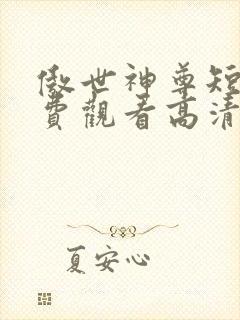 傲世神尊短
費觀看高清
夏安心